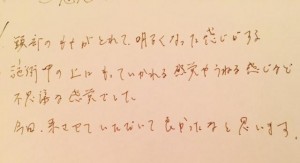 頭部のもやがとれて、明るくなった感じがする
施術中の上にもっていかれる感覚やうねる感じなど
不思議な感覚でした。
今回、来させていただいて良かったなと思います。